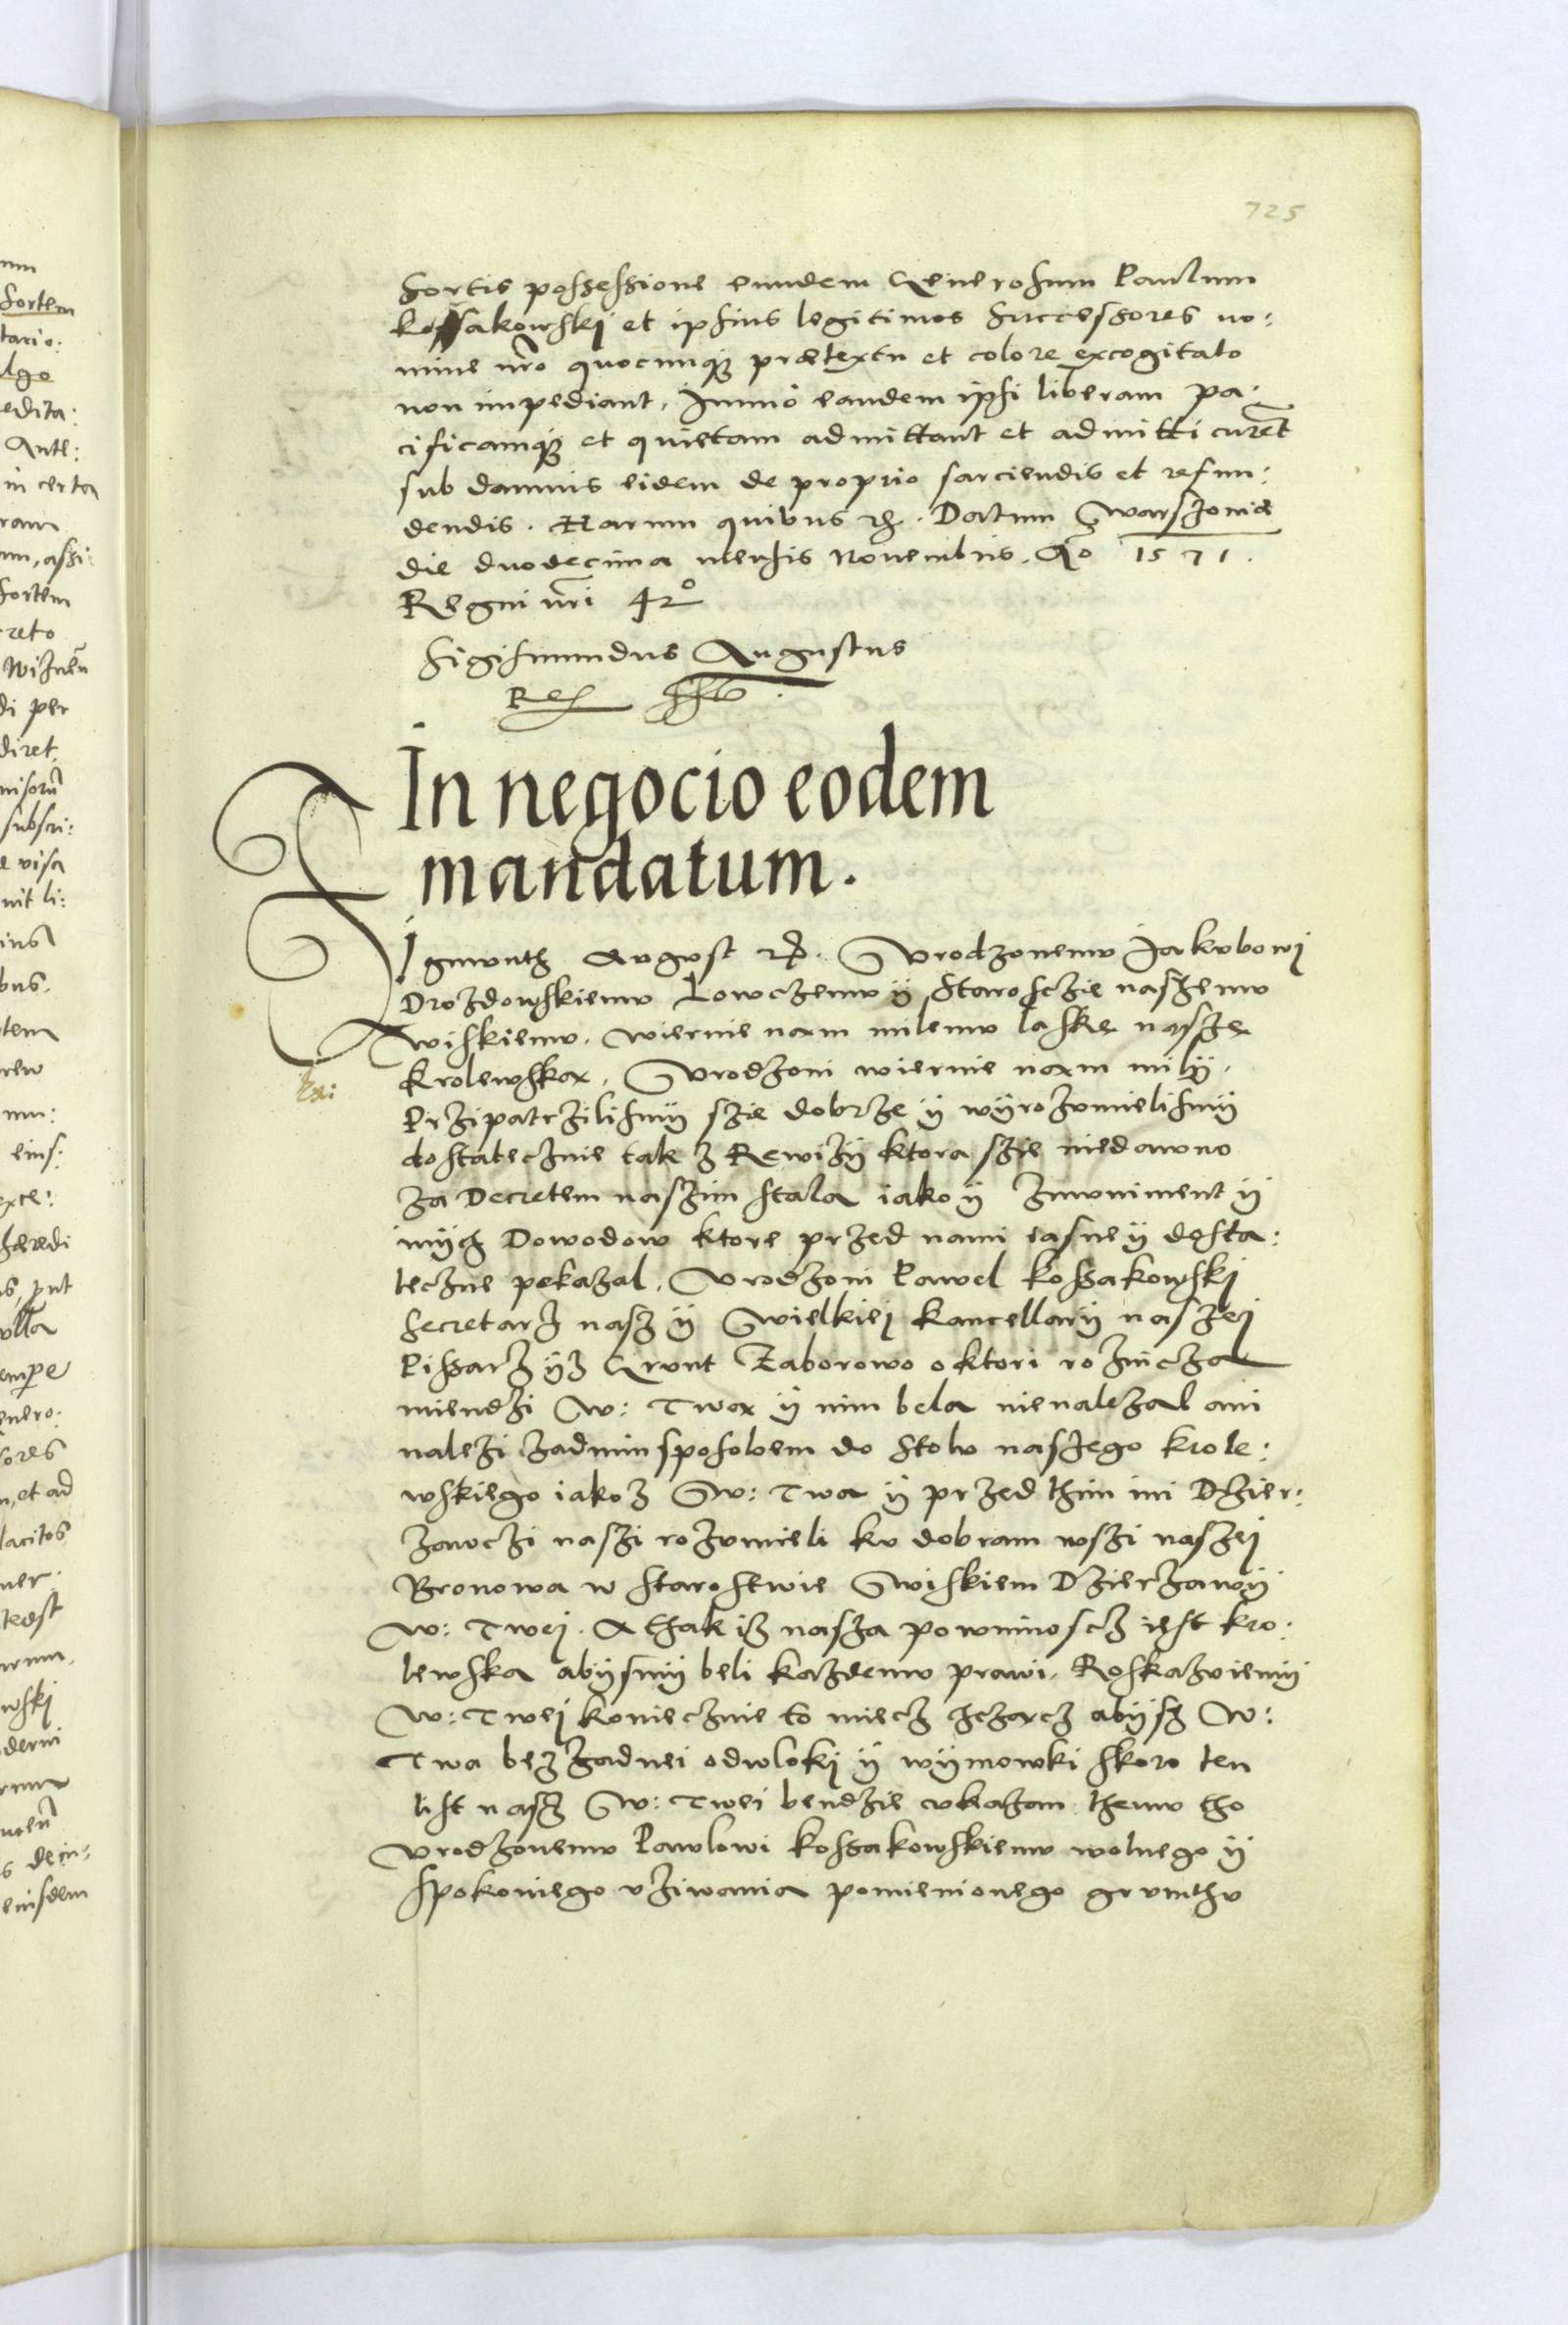 725
sortis possessione eundem Generosum Paulum
Kossakowskj et ipsius legitimos Successores no:
mine nro quocunq; prætextu et colore excogitato
non impediant, Immo eandem ipsi liberam pa:
cificamq; et quietam admittant et admitti curent
sub damnis eidem de proprio sarciendis et refun:
dendis. Harum quibus &. Datum Warszoniæ
die duodecima mensis Novembris. Ao 1571.
Regni nri 42o
Sigismundus Augustus
Rex sst.
In negocio eodem
mandatum.
Sigmunth August &. Vrodzonemu Jakubowj
Drozdowskiemu Lowczemu ÿ Starosczie naszemu
Wiskiemu. wiernie nam milemu laske nasze
Krolewska. Vrodzoni wiernie nam milÿ.
Przipatrzilismÿ szie dobrze ÿ wÿrozumielismÿ
dostatecznie tak z Rewizÿ ktora szie niedawno
za Decretem naszim stala iako ÿ Inwniment ÿ
innÿch Dowodow ktore przed nami iasne ÿ dosta:
teczne pokazal. Vrodzoni Pawel Kossakowskj
Secretarz nasz ÿ Wielkiej Kancellarÿ naszej
Pissarz ÿz Grunt Zaborowo o ktori roznicza
miendzi W: Twa ÿ nim bela nienalezal ani
nalezi zadnim sposobem do Stolu naszego Krole:
wskiego iakoz W: Twa ÿ przed thim ini Dzier:
zawczi naszi rozumieli ku dobram wszi naszej
Bronowa w Starostwie Wiskiem Dzierzawÿ
W: Twej. A thak isz nasza powinnoscz iest kro:
lewska abÿsmÿ beli kazdemu prawi. Roskazuiemÿ
W: Twej koniecznie to miecz chczacz abÿsz W:
Twa bez zadnei odwlokj ÿ wÿmowki skoro ten
list nasz W: Twei bendzie ukazan themu tho
Vrodzonemu Pawlowi Kossakowskiemu wolnego ÿ
spokoniego uziwania pomienionego grunthu